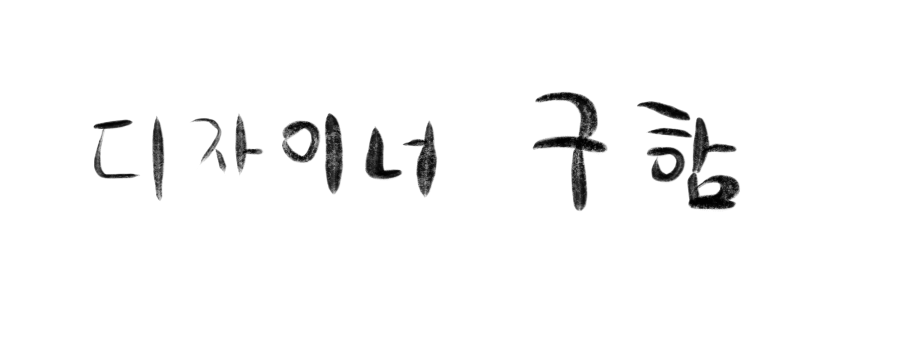 디자이너 구함